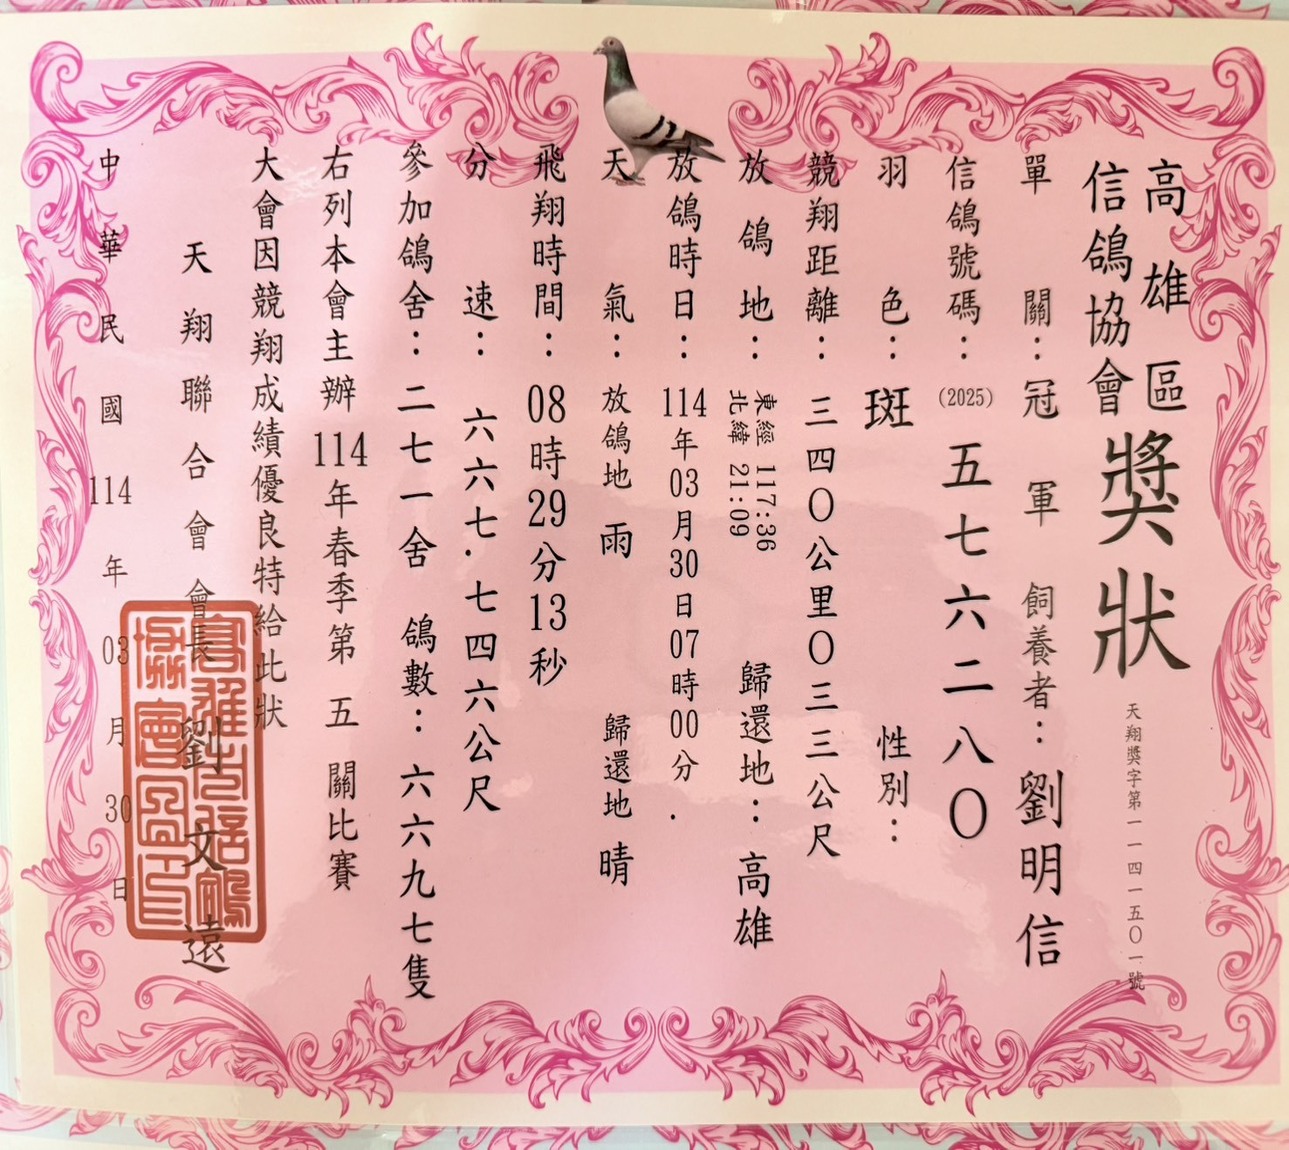 高雄區
信鴿協會
獎狀
天翔獎字第一一四一五〇一號
單關：冠軍 飼養者：劉明信
信鴿號碼：(2025) 五七六二八〇
羽色：斑 性別：
競翔距離：三四〇公里〇三三公尺
放鴿地：東經 117:36 歸還地：高雄
北緯 21:09
放鴿時日：114年03月30日07時00分.
天氣：放鴿地 雨 歸還地 晴
飛翔時間：08時29分13秒
分速：六六七.七四六公尺
參加鴿舍：二七一舍 鴿數：六六九七隻
右列本會主辦114年春季第五關比賽
大會因競翔成績優良特給此狀
天翔聯合會會長 劉文遠
中華民國114年03月30日